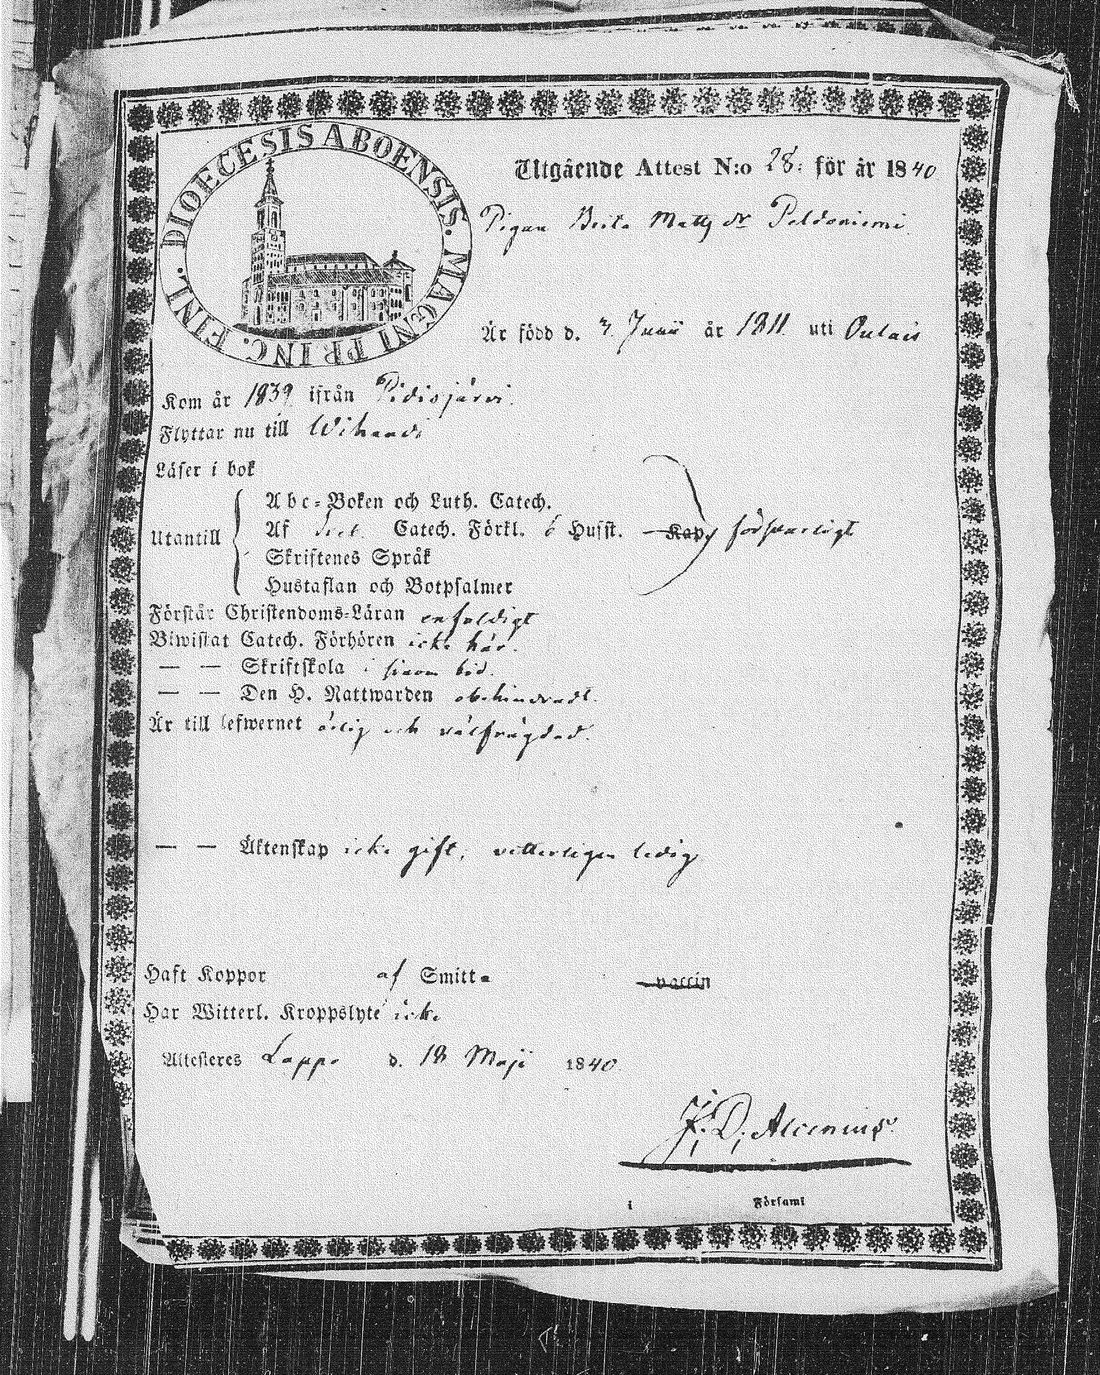 DIOECESIS ABOENSIS. MAGNI PRINC. FINL.
Utgående Attest N:o 28: för år 1840
Pigan Brita Matts dr Peldoniemi
Är född d. 7 Junii år 1811 uti Oulais
Kom år 1839 ifrån Pidisjärvi.
Flyttar nu till Wihandi
Läser i bok
Utantill
Abc-Boken och Luth. Catech.
Af Catech. Förkl. o Husst. Kap. försvarligt
Skriftenes Språk
Hustaflan och Botpsalmer
Förstår Christendoms-Läran enfaldigt
Biwistat Catech. Förhören icke här.
— — Skriftskola i sinom tid.
— — Den H. Nattwarden obehindradt.
Är till lefwernet ärlig och välfrägdad.
— — Äktenskap icke gift, vetterligen ledig
Haft Koppor af Smitta vaccin
Har Witterl. Kroppslyte icke
Attesteres Lappo d. 18 Maji 1840
J. D. Alcenius
i Församl